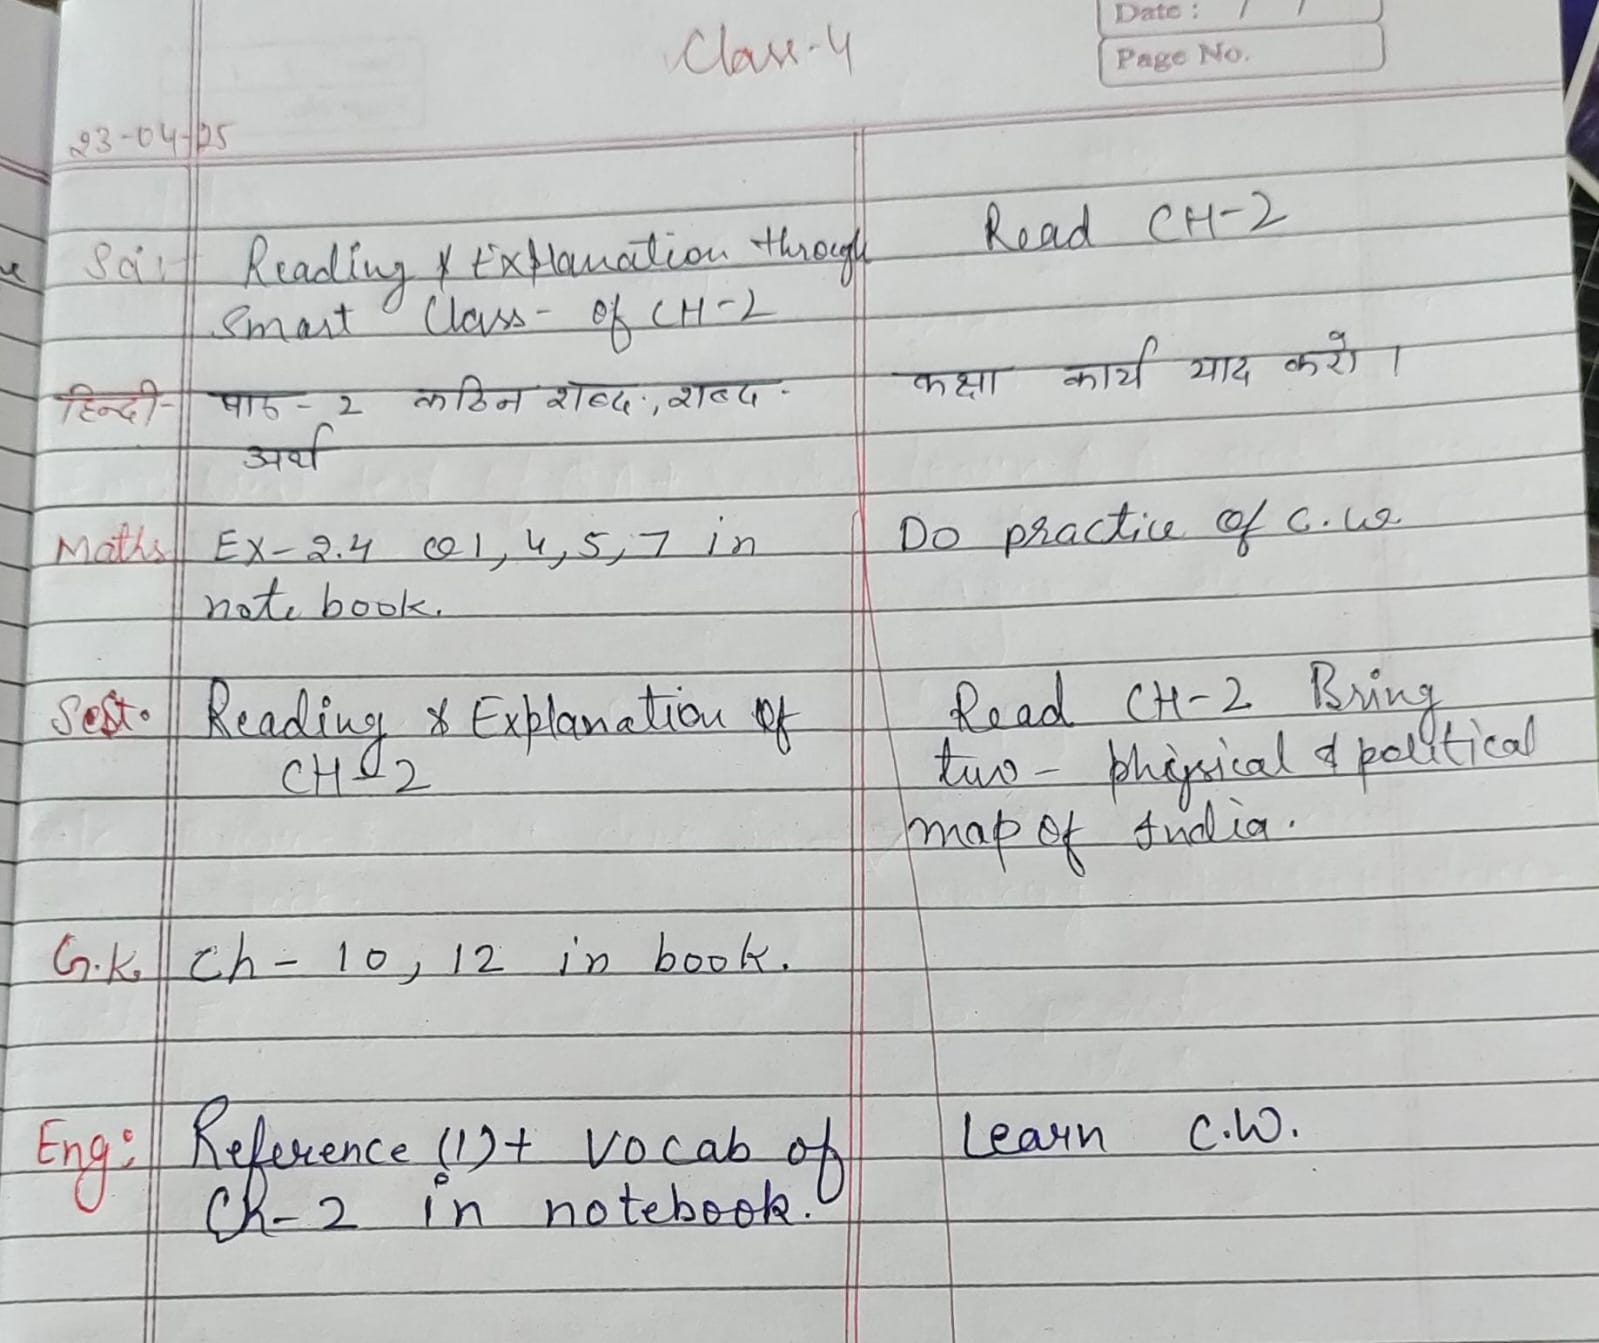 Date : / /
Page No.
Class-4
23-04-25
Sci:
Reading & Explanation through
Smart Class- of CH-2
Read CH-2
हिन्दी-
पाठ - 2 कठिन शब्द, शब्द-
अर्थ
कक्षा कार्य याद करो ।
Maths
Ex-2.4 Q1, 4, 5, 7 in
note book.
Do practice of C.W.
Sst.
Reading & Explanation of
CH-2
Read CH-2 Bring
two- physical & political
map of India.
G.K.
Ch- 10, 12 in book.
Eng:
Reference (1)+ Vocab of
Ch-2 in notebook.
Learn C.W.